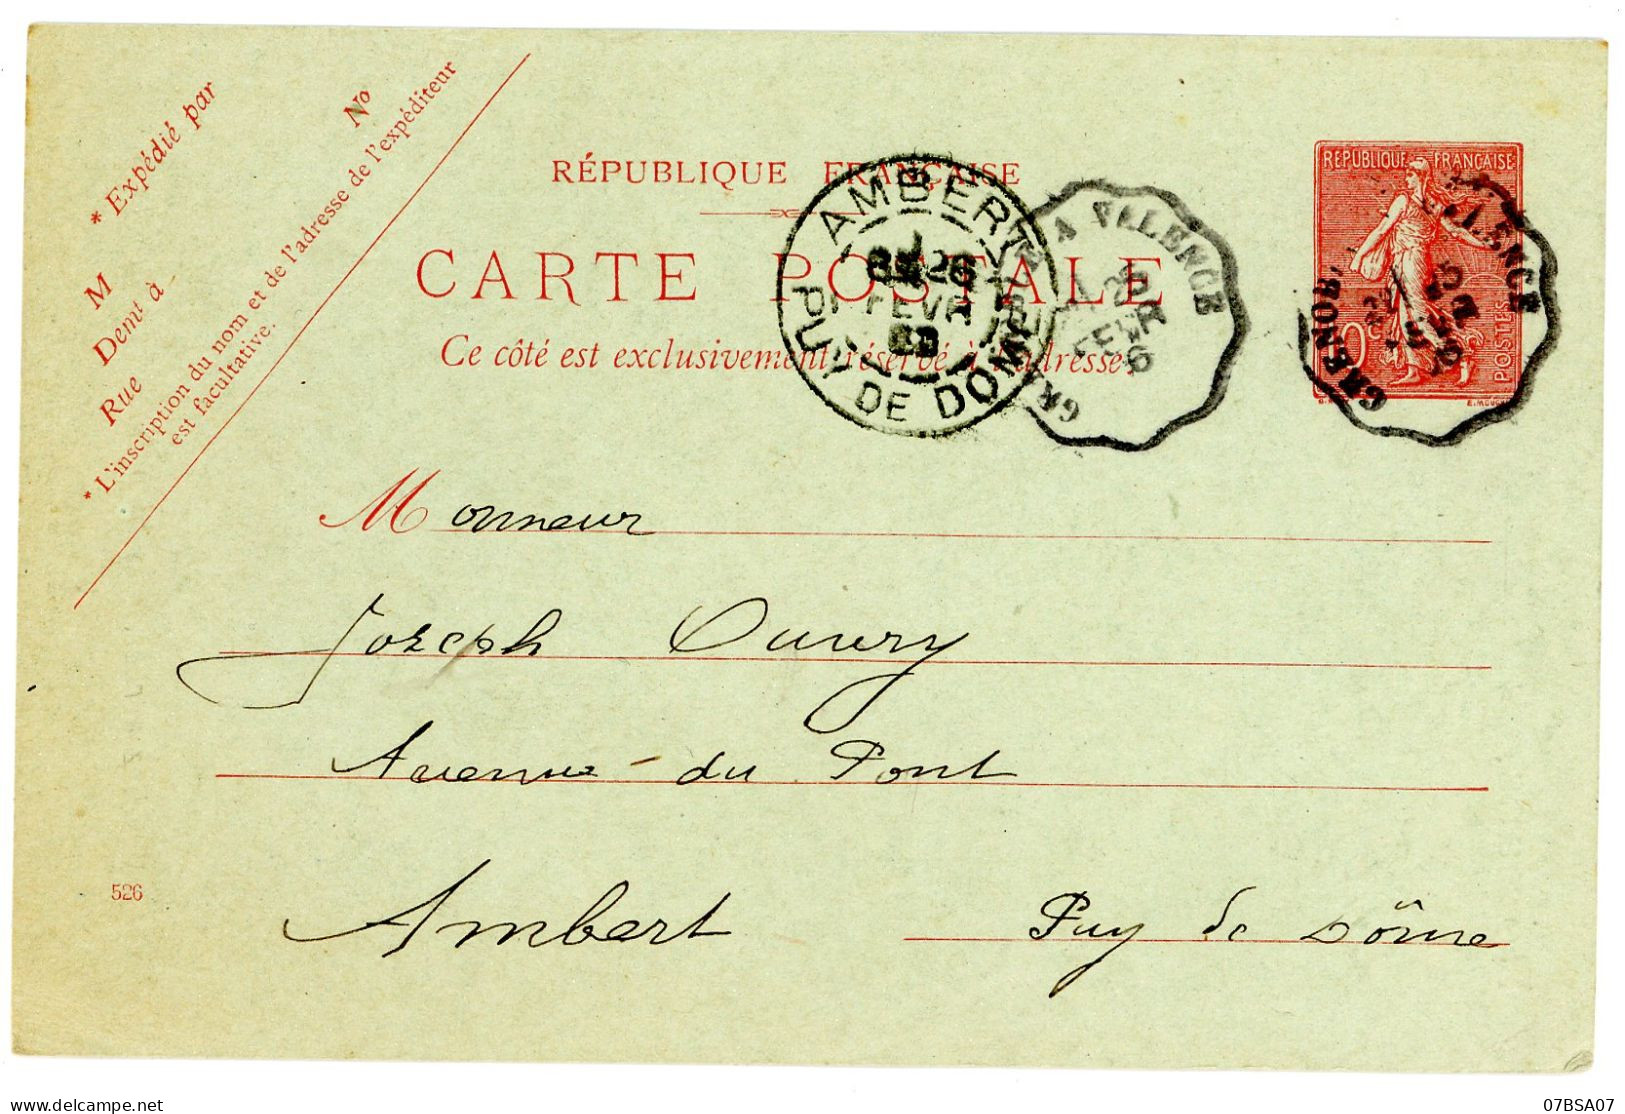 * Expédié par
M
Nº
Demt à
Rue
* L'inscription du nom et de l'adresse de l'expéditeur
est facultative.
RÉPUBLIQUE FRANÇAISE
CARTE POSTALE
Ce côté est exclusivement réservé à l'adresse.
AMBERT
26
FEVR
PUY DE DOME
A VALENCE
GRENOB.
RÉPUBLIQUE FRANÇAISE
POSTES
Monsieur
Joseph
Avenue - du Pont
Ambert Puy de Dôme
526
delcampe.net
07BSA07